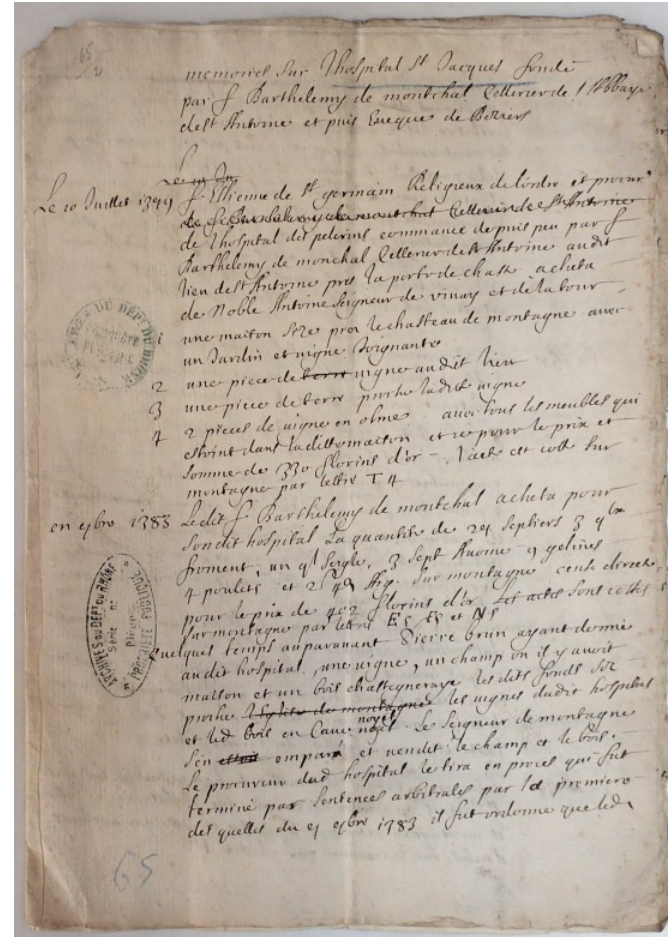 65
memoires sur l'hospital St Jacques fondé
par f Barthelemy de montchal Cellerier de l'Abbaye
de St Antoine et puis Eveque de Beziers
Le 10 Juillet
f. Estienne de St germain Religieux de l'ordre et procur
de f Barthelemy de montchal Cellerier de St Antoine
de l'hospital des pelerins commancé depuis peu par f
Barthelemy de monchal Cellerier de St Antoine audit
lieu de St Antoine pres la porte de chaste acheta
de Noble Antoine seigneur de vinay et de la tour
1 une maison size pres le chasteau de montagne avec
un Jardin et vigne Joignante
2 une piece de terre vigne audit lieu
3 une piece de terre proche ladite vigne
4 2 pieces de vigne en olme avec tous les meubles qui
estoint dans laditte maison et ce pour le prix et
somme de 330 florins d'or - l'acte est cotté sur
montagne par lettre T 4
en 1383 Ledit f. Barthelemy de montchal acheta pour
sondit hospital la quantité de septiers 3
froment, un seigle, 3 sept 9 gelines
4 poulets et sur montagne cens directe
pour le prix de 402 florins d'or. Les actes sont cottés
sur montagne par lettre et
quelques temps auparavant Pierre brun ayant donné
audit hospital, une vigne, un champ ou il y avoit
maison et un bois chastegneraye lesdits fonds size
proche l'Eglise de montagne les vignes dudit hospital
et led bois en Cave noyel Le Seigneur de montagne
s'en estoit emparé et vendit le champ et le bois.
Le procureur dud hospital le tira en proces qui fut
terminé par sentences arbitrales par la premiere
des quelles du 1383 il fut ordonné que led.
ARCHIVES DU DEPT DU RHONE
PROPRIETE PUBLIQUE
65